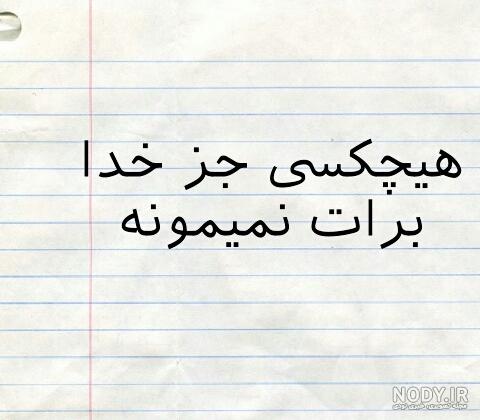 هیچکسی جز خدا
برات نمیمونه
NODY.IR